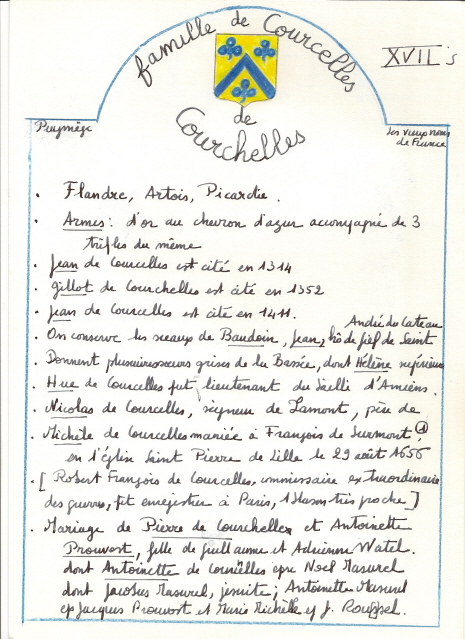 famille de Courcelles
XVII's
de
Courchelles
Puymège
les vieux noms
de France
. Flandre, Artois, Picardie.
. Armes: d'or au chevron d'azur accompagné de 3
trèfles du même
. Jean de Courcelles est cité en 1314
. Gillot de Courchelles est cité en 1352
. Jean de Courcelles est cité en 1411.
André du Cateau
. On conserve les sceaux de Baudoin, Jean, de fief de Saint
. Donnent plusieurs soeurs grises de la Bassée, dont Hélène supérieure
. Hue de Courcelles fut lieutenant du Bailli d'Amiens.
. Nicolas de Courcelles, seigneur de Lamont, père de
. Michèle de Courcelles mariée à François de Surmont
en l'église Saint Pierre de Lille le 29 août 1656
. [Robert François de Courcelles, commissaire extraordinaire
des guerres, fit enregistrer à Paris, 1 blason très proche]
. Mariage de Pierre de Courchelles et Antoinette
Prouvost, fille de Guillaume et Adrienne Watel.
dont Antoinette de Courcelles epse Noel Masurel
dont Jacobus Masurel, jesuite; Antoinette Masurel
ep Jacques Prouvost et Marie Michèle ep J. Roussel.